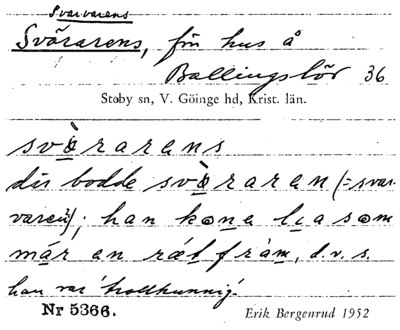 Svarvarens
Svörarens, för hus å
Ballingslöv 36
Stoby sn, V. Göinge hd, Krist. län.
svò̱rarens
där bodde svò̱raren (=svar-
varen); han kona lia som
már an ræt fràm, d.v.s.
han var 'trollkunnig'.
Nr 5366. Erik Bergenrud 1952